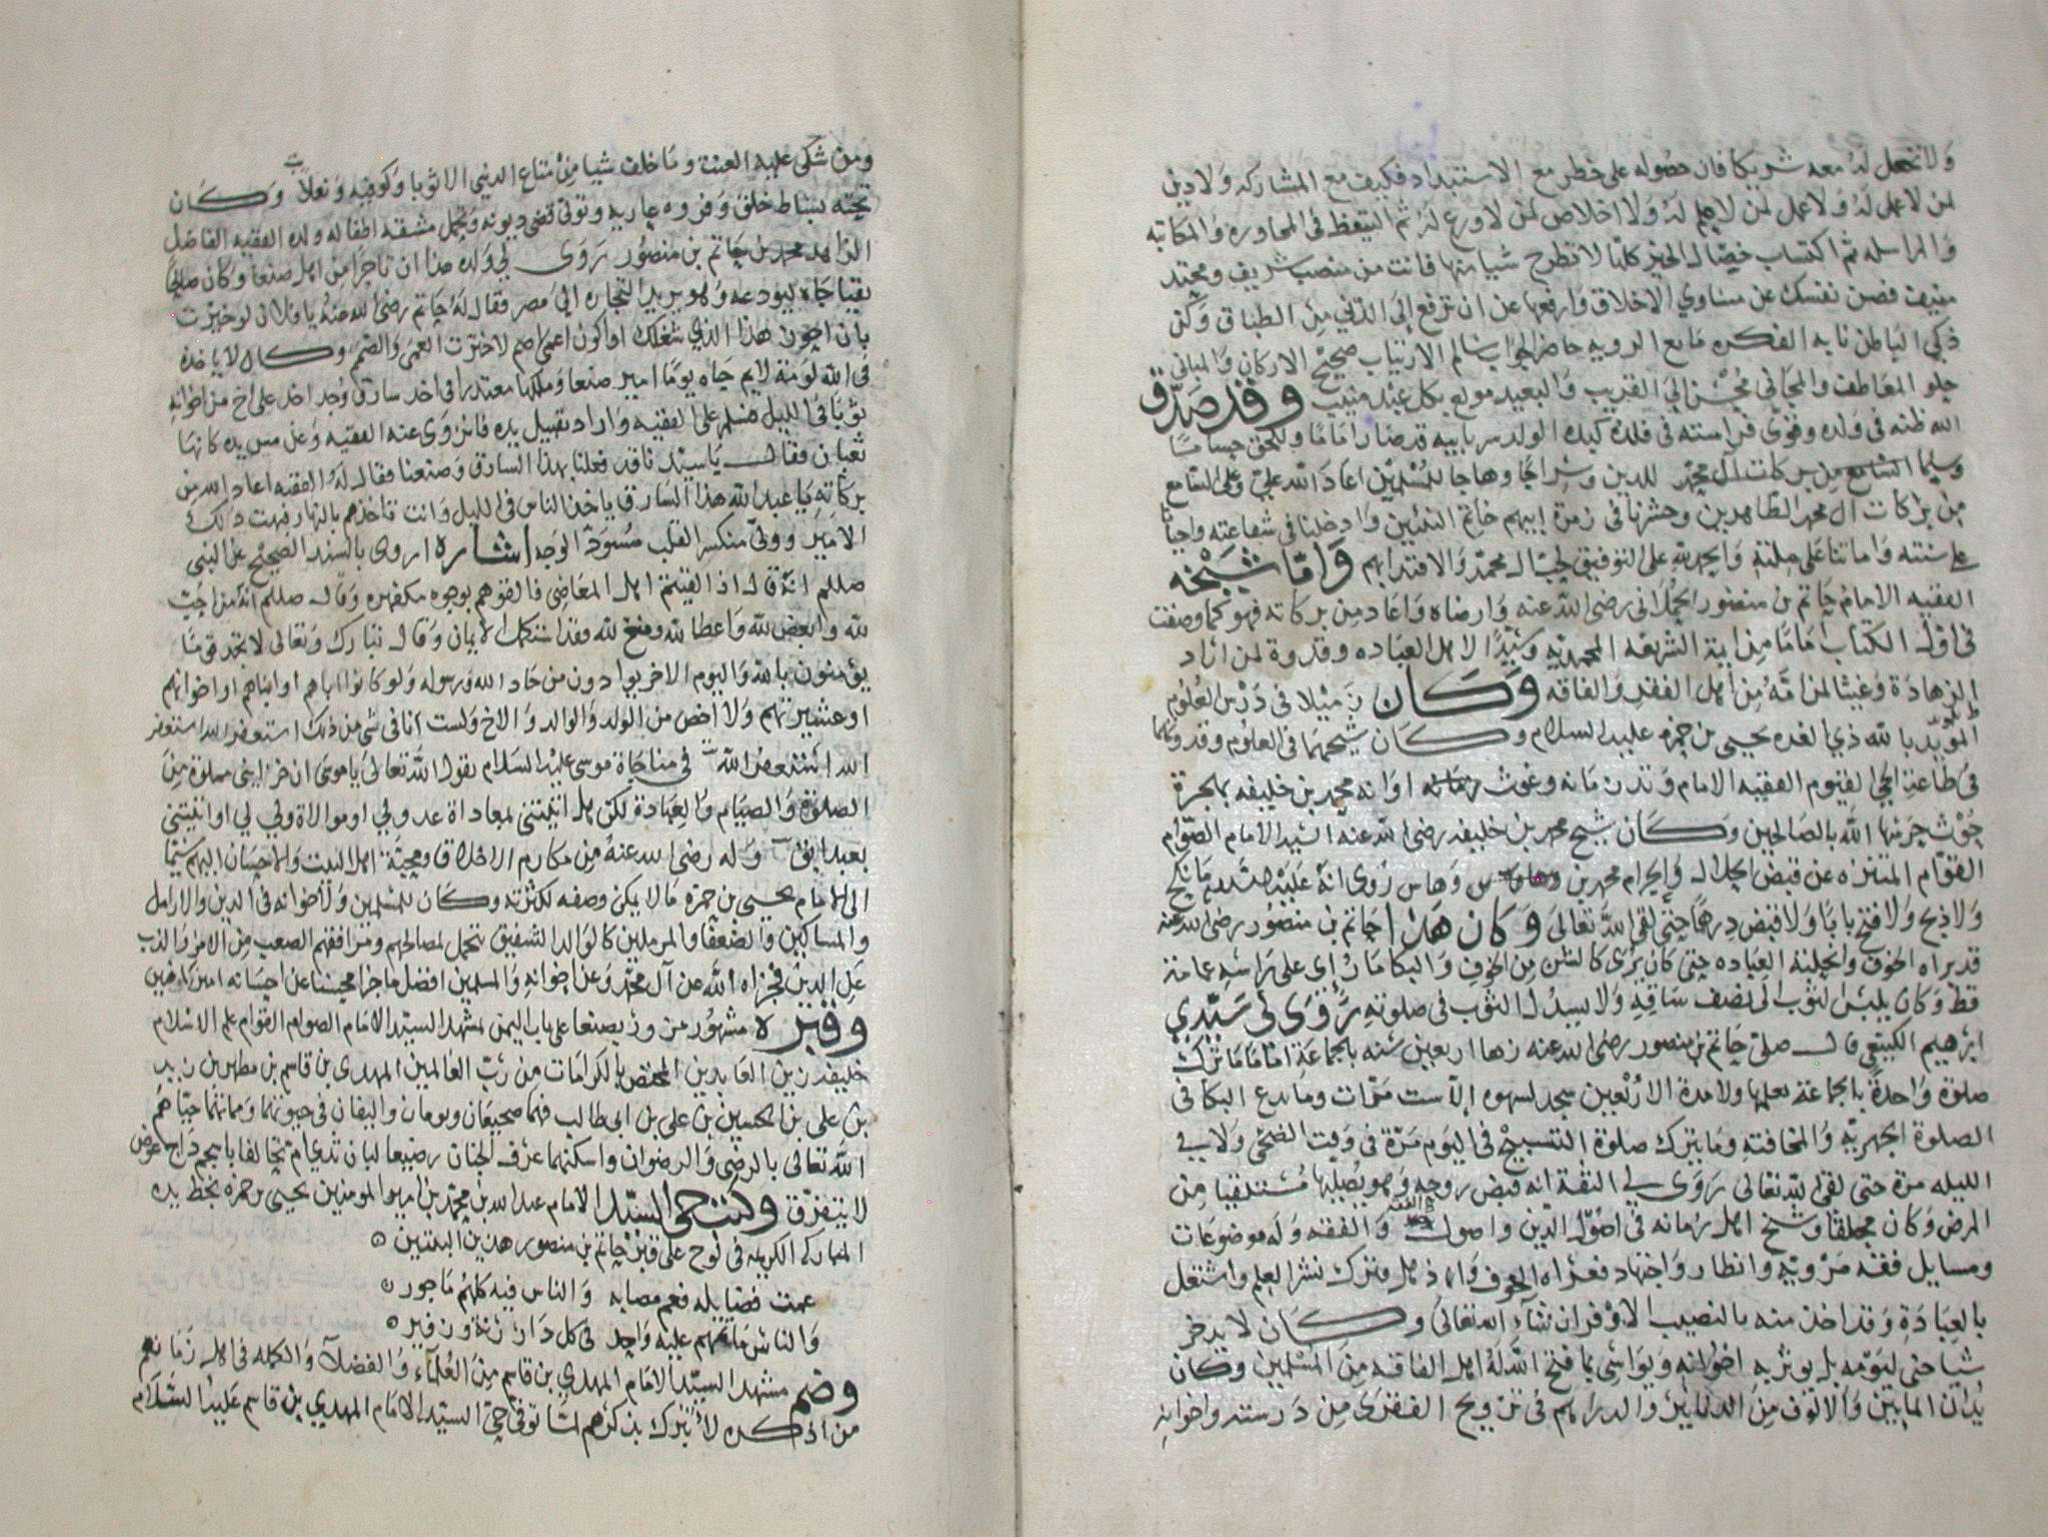 ولا تجعل له معه شريكا فان حصوله على خطر مع الاستبداد فكيف مع المشاركه ولا دين
لمن لا عمل له ولا عمل لمن لا علم له ولا اخلاص لمن لا ورع له ثم التيقظ في المحاوره والمكاتبه
والمراسله ثم اكتساب خصال الخير كلها لا تطرح شيا منها فانت من منصب شريف ومحتد
منيف فصن نفسك عن مساوي الاخلاق وارفعها عن ان ترفع الى الدني من الطباق وكن
ذكي الباطن نابه الفكره مانع الرويه حاضر الجواب سالم الارتياب صحيح الاركان والمباني
حلو المعاطف والمجاني محسن الى القريب والبعيد مولع بكل عبد منيب وقد صدق
الله ظنه في ولده وقوى فراسته في فلذة كبده الولد سر ابيه قد صار اماما وللحق حساما
للدين وسراجا وهاجا للمسلمين اعاد الله علي وعلى السامع
من بركات ال محمد الطاهرين وحشرنا في زمرة ابيهم خاتم النبيين وادخلنا في شفاعته واحيانا
على سنته واماتنا على ملته والحمد لله على التوفيق لحب ال محمد والاقتدا بهم واما شيخه
الفقيه الامام حاتم بن منصور الحملاني رضي الله عنه وارضاه واعاد من بركاته فهو كما وصفت
في اول الكتاب اماما من ايمة الشريعه المحمديه وسيدا لاهل العباده وقدوة لمن اراد
الزهادة وغيثا لمن امه من اهل الفقر والفاقه وكان زميلا في درس العلوم
المويد بالله ذي الغره يحيى بن حمزه عليه السلام وكان شيخهما في العلوم وقدوتهما
في طاعة الحي القيوم الفقيه الامام وغوث اوانه محمد بن خليفه بهجرة
حوث حرسها الله بالصالحين وكان شيخ محمد بن خليفه رضي الله عنه السيد الامام الصوام
القوام المتنزه عن قبض الحلال والحرام محمد بن وهاس روى انه عليه السلام ما نكح
ولا ذبح ولا فتح بابا ولا قبض درهما حتى لقي الله تعالى وكان هذا حاتم بن منصور رضي الله عنه
قد براه الخوف وانحلته العباده حتى كان يرى كالشن من الخوف والبكا ما راى على راسه عمامة
قط وكان يلبس الثوب الى نصف ساقيه ولا يسدل الثوب في صلوته روى لي سيدي
ابرهيم الكينعي قال صلى حاتم بن منصور رضي الله عنه زها اربعين سنه بالجماعة اماما ما ترك
صلوة واحدة بالجماعة نعلمها ولا مدة الاربعين سجد لسهوه الا ست مرات وما يدع البكا في
الصلوة الجهريه والمخافته وما يترك صلوة التسبيح في اليوم مرة في وقت الضحى ولا في
الليله مرة حتى لقي الله تعالى روى لي الثقة انه قبض روحه وهو يصليها مستلقيا من
المرض وكان محلقا وشيخ اهل زمانه في اصول الدين واصول الفقه والفقه وله موضوعات
ومسايل فقه مرويه وانظار واجتهاد فعراه الخوف واذهله وترك نشر العلم واشتغل
بالعبادة وقد اخذ منه بالنصيب الاوفر ان شآء الله تعالى وكان لا يدخر
شيا حتى ليومه بل يوثر به اخوانه ويواسي بما فتح الله له اهل الفاقه من المسلمين وكان
يدان المايتين والالوف من الدنانير والدراهم في تزويج الفقرى من درسته واخوانه
ومن شكى عليه العنت وما خلف شيا من متاع الدنيى الا ثوبا وكوفيه ونعلا وكان
تحته بساط خلق وفروه عاريه وتولى قضى ديونه وتحمل مشقه اطفاله ولده الفقيه الفاضل
الزاهد محمد بن حاتم بن منصور روى لي ولده هذا ان تاجرا من اهل صنعا وكان صالحا
تقيا جاه ليودعه وهو يريد التجاره الى مصر فقال له حاتم رضي الله عنه يا فلان لو خيرت
بان اكون هذا الذي شغلك او اكون اعمى اصم لاخترت العمى والصمم وكان لا ياخذه
في الله لومة لايم جاه يوما امير صنعا وملكها معتذرا في اخذ سارق وجد اخذ على اخ من اخوانه
ثوبا في الليل فسلم على الفقيه واراد تقبيل يده فانزوى عنه الفقيه وعن مس يده كانها
ثعبان فقال يا سيدنا قد فعلنا بهذا السارق وصنعنا فقال له الفقيه اعاد الله من
بركاته يا عبد الله هذا السارق ياخذ الناس في الليل وانت تاخذهم بالنهار فبهت ذلك
الامير وولى منكسر القلب مسود الوجه اشارة اروى بالسند الصحيح عن النبي
صللم انه قال اذا لقيتم اهل المعاصي فالقوهم بوجوه مكفهره وقال صللم انه من احب
لله وابغض لله واعطا لله ومنع لله فقد استكمل الايمان وقال تبارك وتعالى لا تجد قوما
يؤمنون بالله واليوم الاخر يوادون من حاد الله ورسوله ولو كانوا اباهم او ابناهم او اخوانهم
او عشيرتهم ولا اخص من الولد والوالد والاخ ولست انا في شي من ذلك استغفر الله استغفر
الله استغفر الله في مناجاة موسى عليه السلام يقول الله تعالى يا موسى
الصلوة والصيام والعبادة لكن هل اتيتني بمعاداة عدو لي او موالاة ولي لي او اتيتني
بعبد ابق وله رضي الله عنه من مكارم الاخلاق ومحبة اهل البيت والاحسان اليهم سيما
الى الامام يحيى بن حمزه مالا يمكن وصفه لكثرته وكان للمسلمين ولاخوانه في الدين والارامل
والمساكين والضعفا والمرملين كالوالد الشفيق يتحمل لمصالحهم ومرافقهم الصعب من الامر والذب
على الدين فجزاه الله عن آل محمد وعن اخوانه والمسلمين افضل ما جزا محسنا عن احسانه امين
وقبره مشهور مزور بصنعا على باب اليمن بمشهد السيد الامام الصوام القوام علم الاسلام
خليفة زين العابدين المختص بالكرامات من رب العالمين المهدي بن قاسم بن مطهر بن زيد
بن علي بن الحسين بن علي بن ابي طالب فهما ضجيعان وتومان واليفان في حيوتهما ومماتهما حياهم
الله تعالى بالرضى والرضوان واسكنهما غرف الجنان رضيعا لبان ثدي ام تحالفا باسحم داج عوض
لا يتفرق وكتب حي السيد الامام عبد الله بن محمد بن امير المومنين يحيى بن حمزه بخط يده
المباركه الكريمه في لوح على قبر حاتم بن منصور هذين البيتين
عمت فضايله فعم مصابه والناس فيه كلهم ماجور
والناس ماتمهم عليه واحد في كل دار رنة وزفير
وضم مشهد السيد الامام المهدي بن قاسم من العلمآء والفضلآ والكمله في اهل زمانهم
من اذكره لاتبرك بذكرهم لما توفي حي السيد الامام المهدي بن قاسم عليه السلام